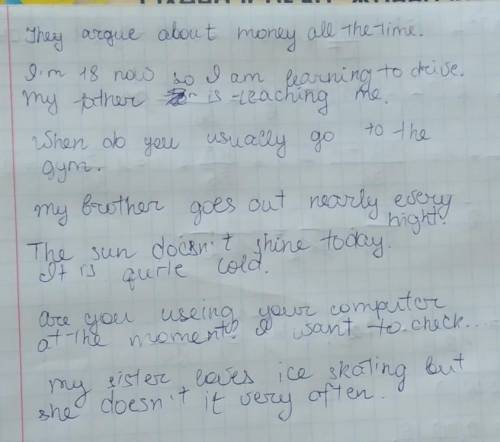 They argue about money all the time.
I'm 18 now so I am learning to drive.
My father is teaching me.
When do you usually go to the
gym.
my brother goes out nearly every
night.
The sun doesn't shine today.
It is quite cold.
are you useing your computer
at the moment? I want to check...
my sister loves ice skating but
she doesn't it very often.